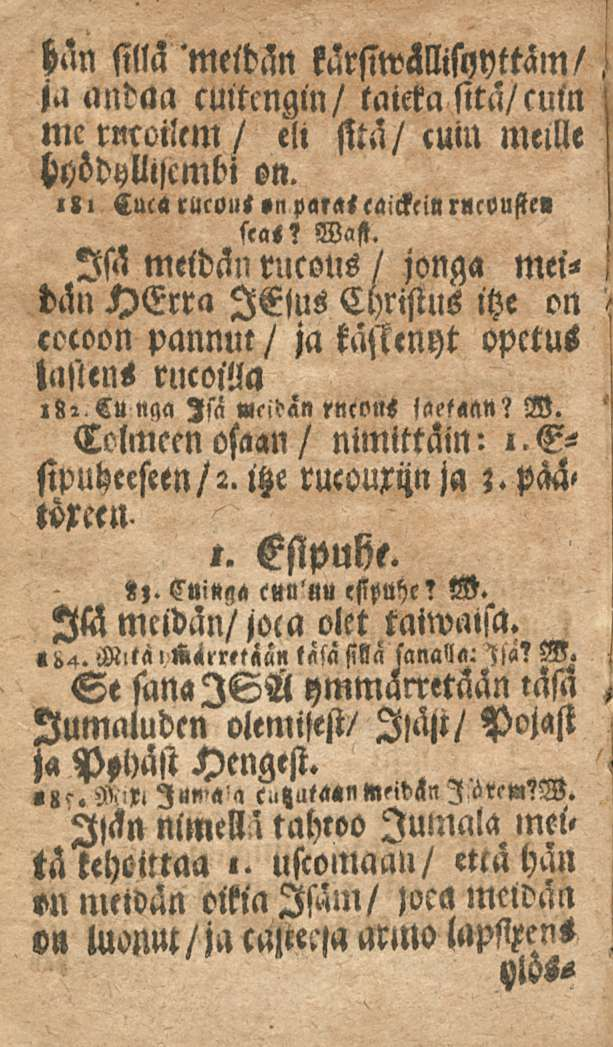 hän sillä meidän kärsiwällisyyttäm/
ja andaa cuitengin/ taicka sitä/ cuin
me rucoilem/ eli sitä/ cuin meille
hyödyllisembi on.
181 Cuca rucous on paras caickein rucousten
seas? Wast.
Isä meidän rucous/ jonga mei⸗
dän HErra JEsus Christus itze on
cocoon pannut/ ja käskenyt opetus
lastens rucoilla
182. Cuinga Isä meidän rucous jaetaan? W.
Colmeen osaan/ nimittäin: 1. E⸗
sipuheeseen/ 2. itze rucouxijn ja 3. pää⸗
töxeen.
1. Esipuhe.
83. Cuinga cuuluu esipuhe? W.
Isä meidän/ joca olet taiwaisa.
184. Mitä ym̃ärretään täsä sillä sanalla: Isä? W.
Se sana ISÄ ymmärretään täsä
Jumaluden olemisest/ Isäst/ Pojast
ja Pyhäst Hengest.
185. Mixi Jumala cutzutaan meidän Isäxem? W.
Isän nimellä tahtoo Jumala mei⸗
tä kehoittaa 1. uscomaan/ että hän
on meidän oikia Isäm/ joca meidän
on luonut/ ja casteesa armo lapsixens
ylös⸗